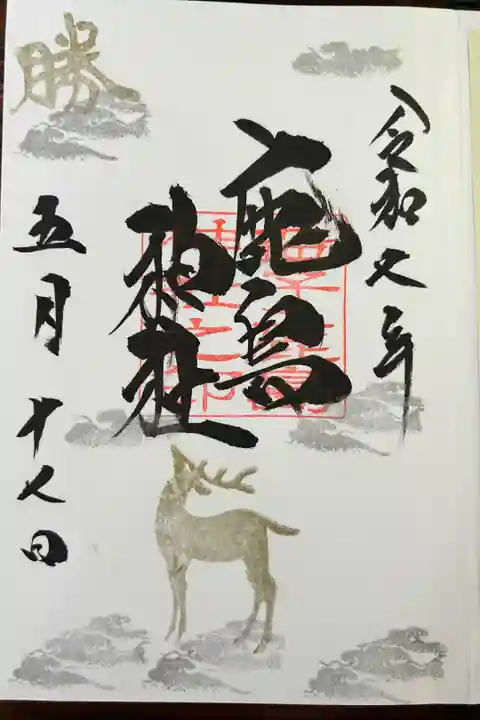 令和六年
鹿島
神社
五月十八日
勝